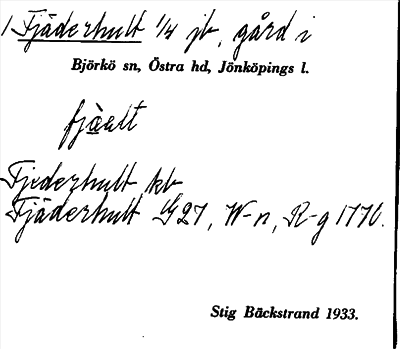 1 Fjäderhult 1/4 jb, gård i
Björkö sn, Östra hd, Jönköpings l.
fjàelt
Fjederhult kb
Fjäderhult G27, W-n, R-g 1770.
Stig Bäckstrand 1933.